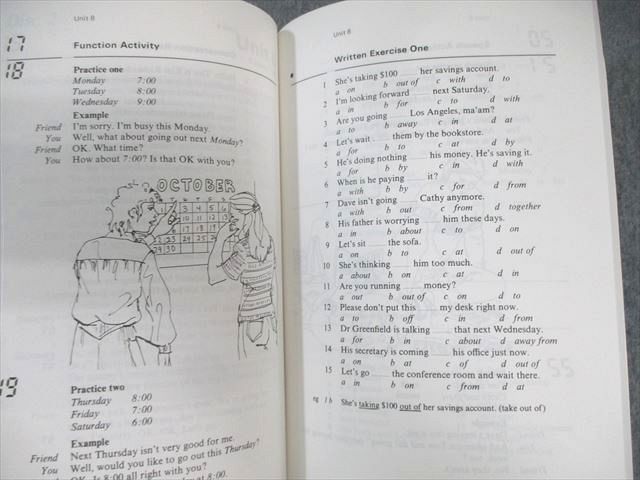 Unit 8
17
Function Activity
18
Practice one
Monday 7:00
Tuesday 8:00
Wednesday 9:00
Example
Friend I'm sorry. I'm busy this Monday.
You Well, what about going out next Monday?
Friend OK. What time?
You How about 7:00? Is that OK with you?
OCTOBER
19
Practice two
Thursday 8:00
Friday 7:00
Saturday 6:00
Example
Friend Next Thursday isn't very good for me.
You Well, would you like to go out this Thursday?
OK. Is 8:00 all right with you?
at 8:00.
Unit 8
Written Exercise One
1 She's taking $100 ___ her savings account.
a on b out of c with d to
2 I'm looking forward ___ next Saturday.
a in b for c to d with
3 Are you going ___ Los Angeles, ma'am?
a to b away c in d at
4 Let's wait ___ them by the bookstore.
a for b to c at d by
5 He's doing nothing ___ his money. He's saving it.
a for b by c in d with
6 When is he paying ___ it?
a with b by c for d from
7 Dave isn't going ___ Cathy anymore.
a with b out c from d together
8 His father is worrying ___ him these days.
a in b about c to d on
9 Let's sit ___ the sofa.
a on b to c at d out of
10 She's thinking ___ him too much.
a about b on c at d in
11 Are you running ___ money?
a out b out of c on d to
12 Please don't put this ___ my desk right now.
a to b off c in d from
13 Dr Greenfield is talking ___ that next Wednesday.
a for b in c about d away from
14 His secretary is coming ___ his office just now.
a on b at c of d out of
15 Let's go ___ the conference room and wait there.
a in b on c from d at
eg 1 b She's taking $100 out of her savings account. (take out of)